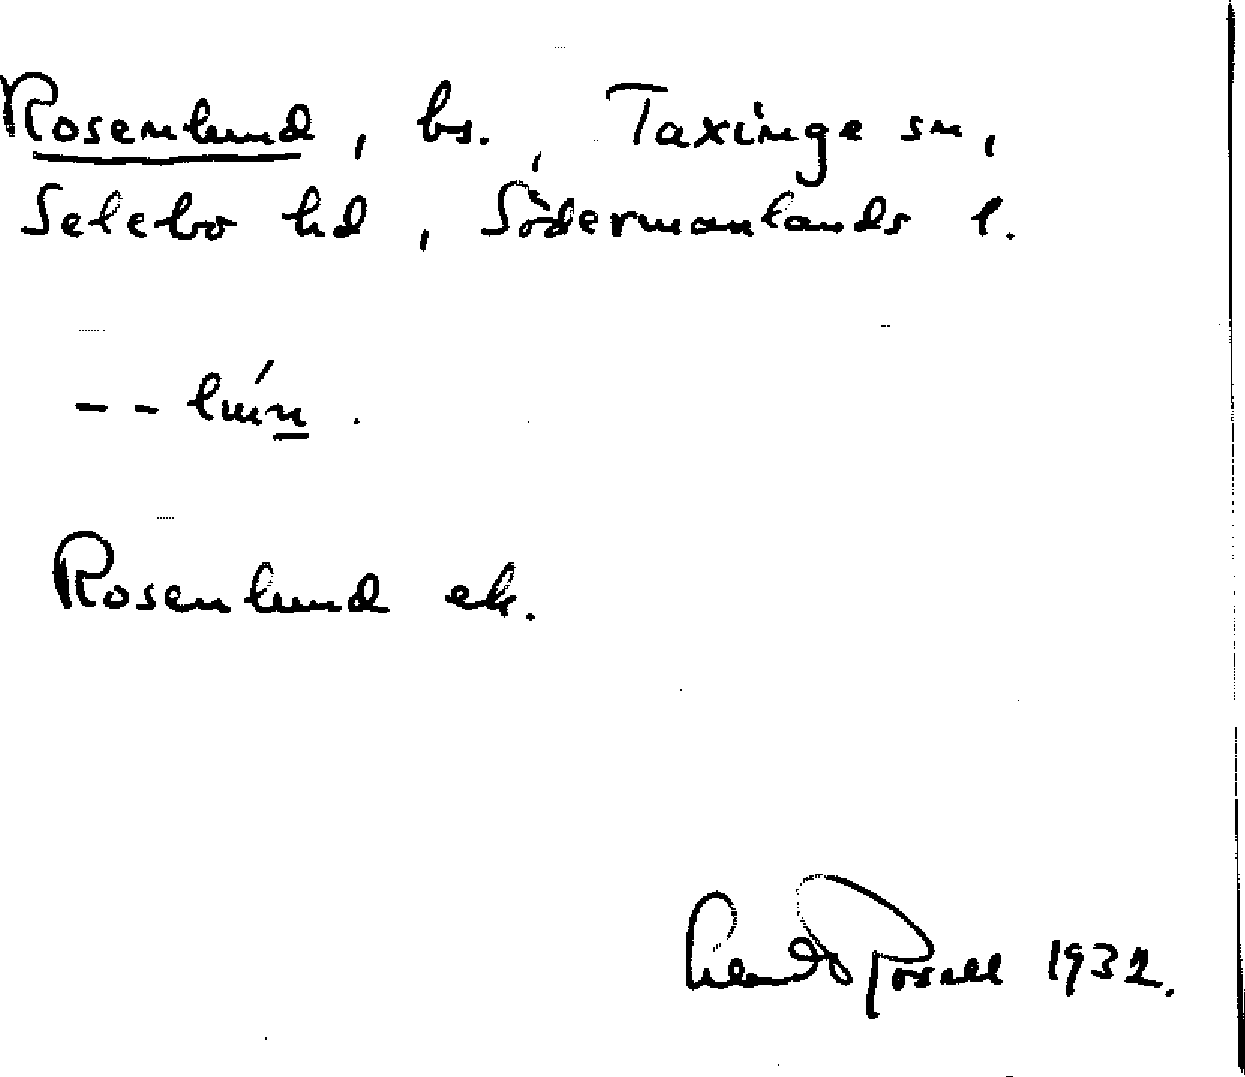 Rosenlund, bs., Taxinge sn,
Selebo hd, Södermanlands l.
-- lún.
Rosenlund ek.
1932.